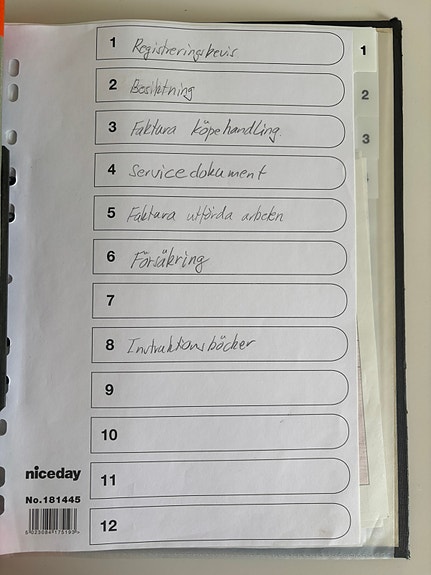 1 Registreringsbevis
1
2 Besiktning
2
3 Faktura köpehandling.
3
4 Servicedokument
4
5 Faktura utförda arbeten
6 Försäkring
7
8 Instruktionsböcker
9
10
11
12
niceday
No.181445
5023084175193>